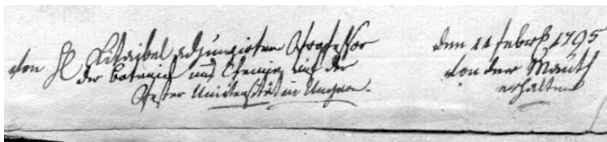 von H Kitaibel adjungirten Professor
der botanick und Chemie auf der
Pester Universität in Ungarn.
den 11 Febr 1795
von der Mauth
erhalten